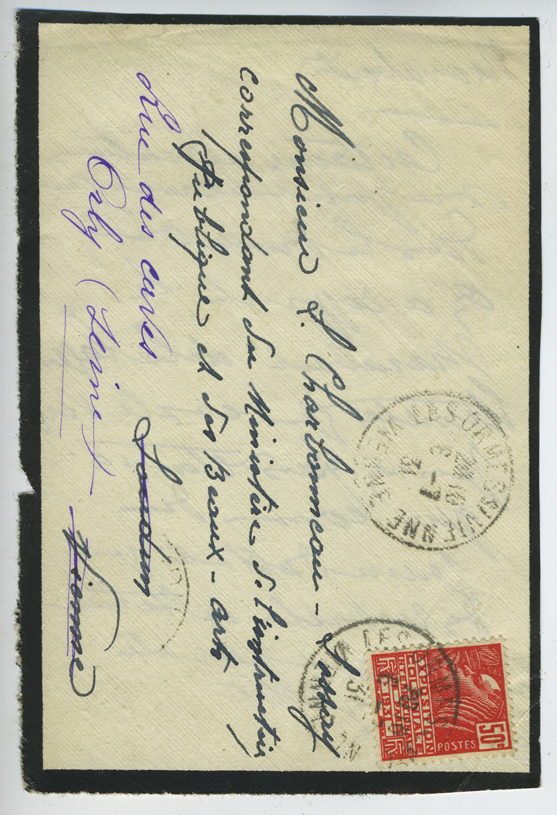 Monsieur L. Charbonneau-Lassay
correspondant du Ministère de l'instruction
Publique et des Beaux-arts
Loudun
Vienne
Rue des caves
Orly (Seine)
LES ORMES VIENNE
31
EXPOSITION
COLONIALE
INTERNATIONALE
PARIS 1931
POSTES
50c